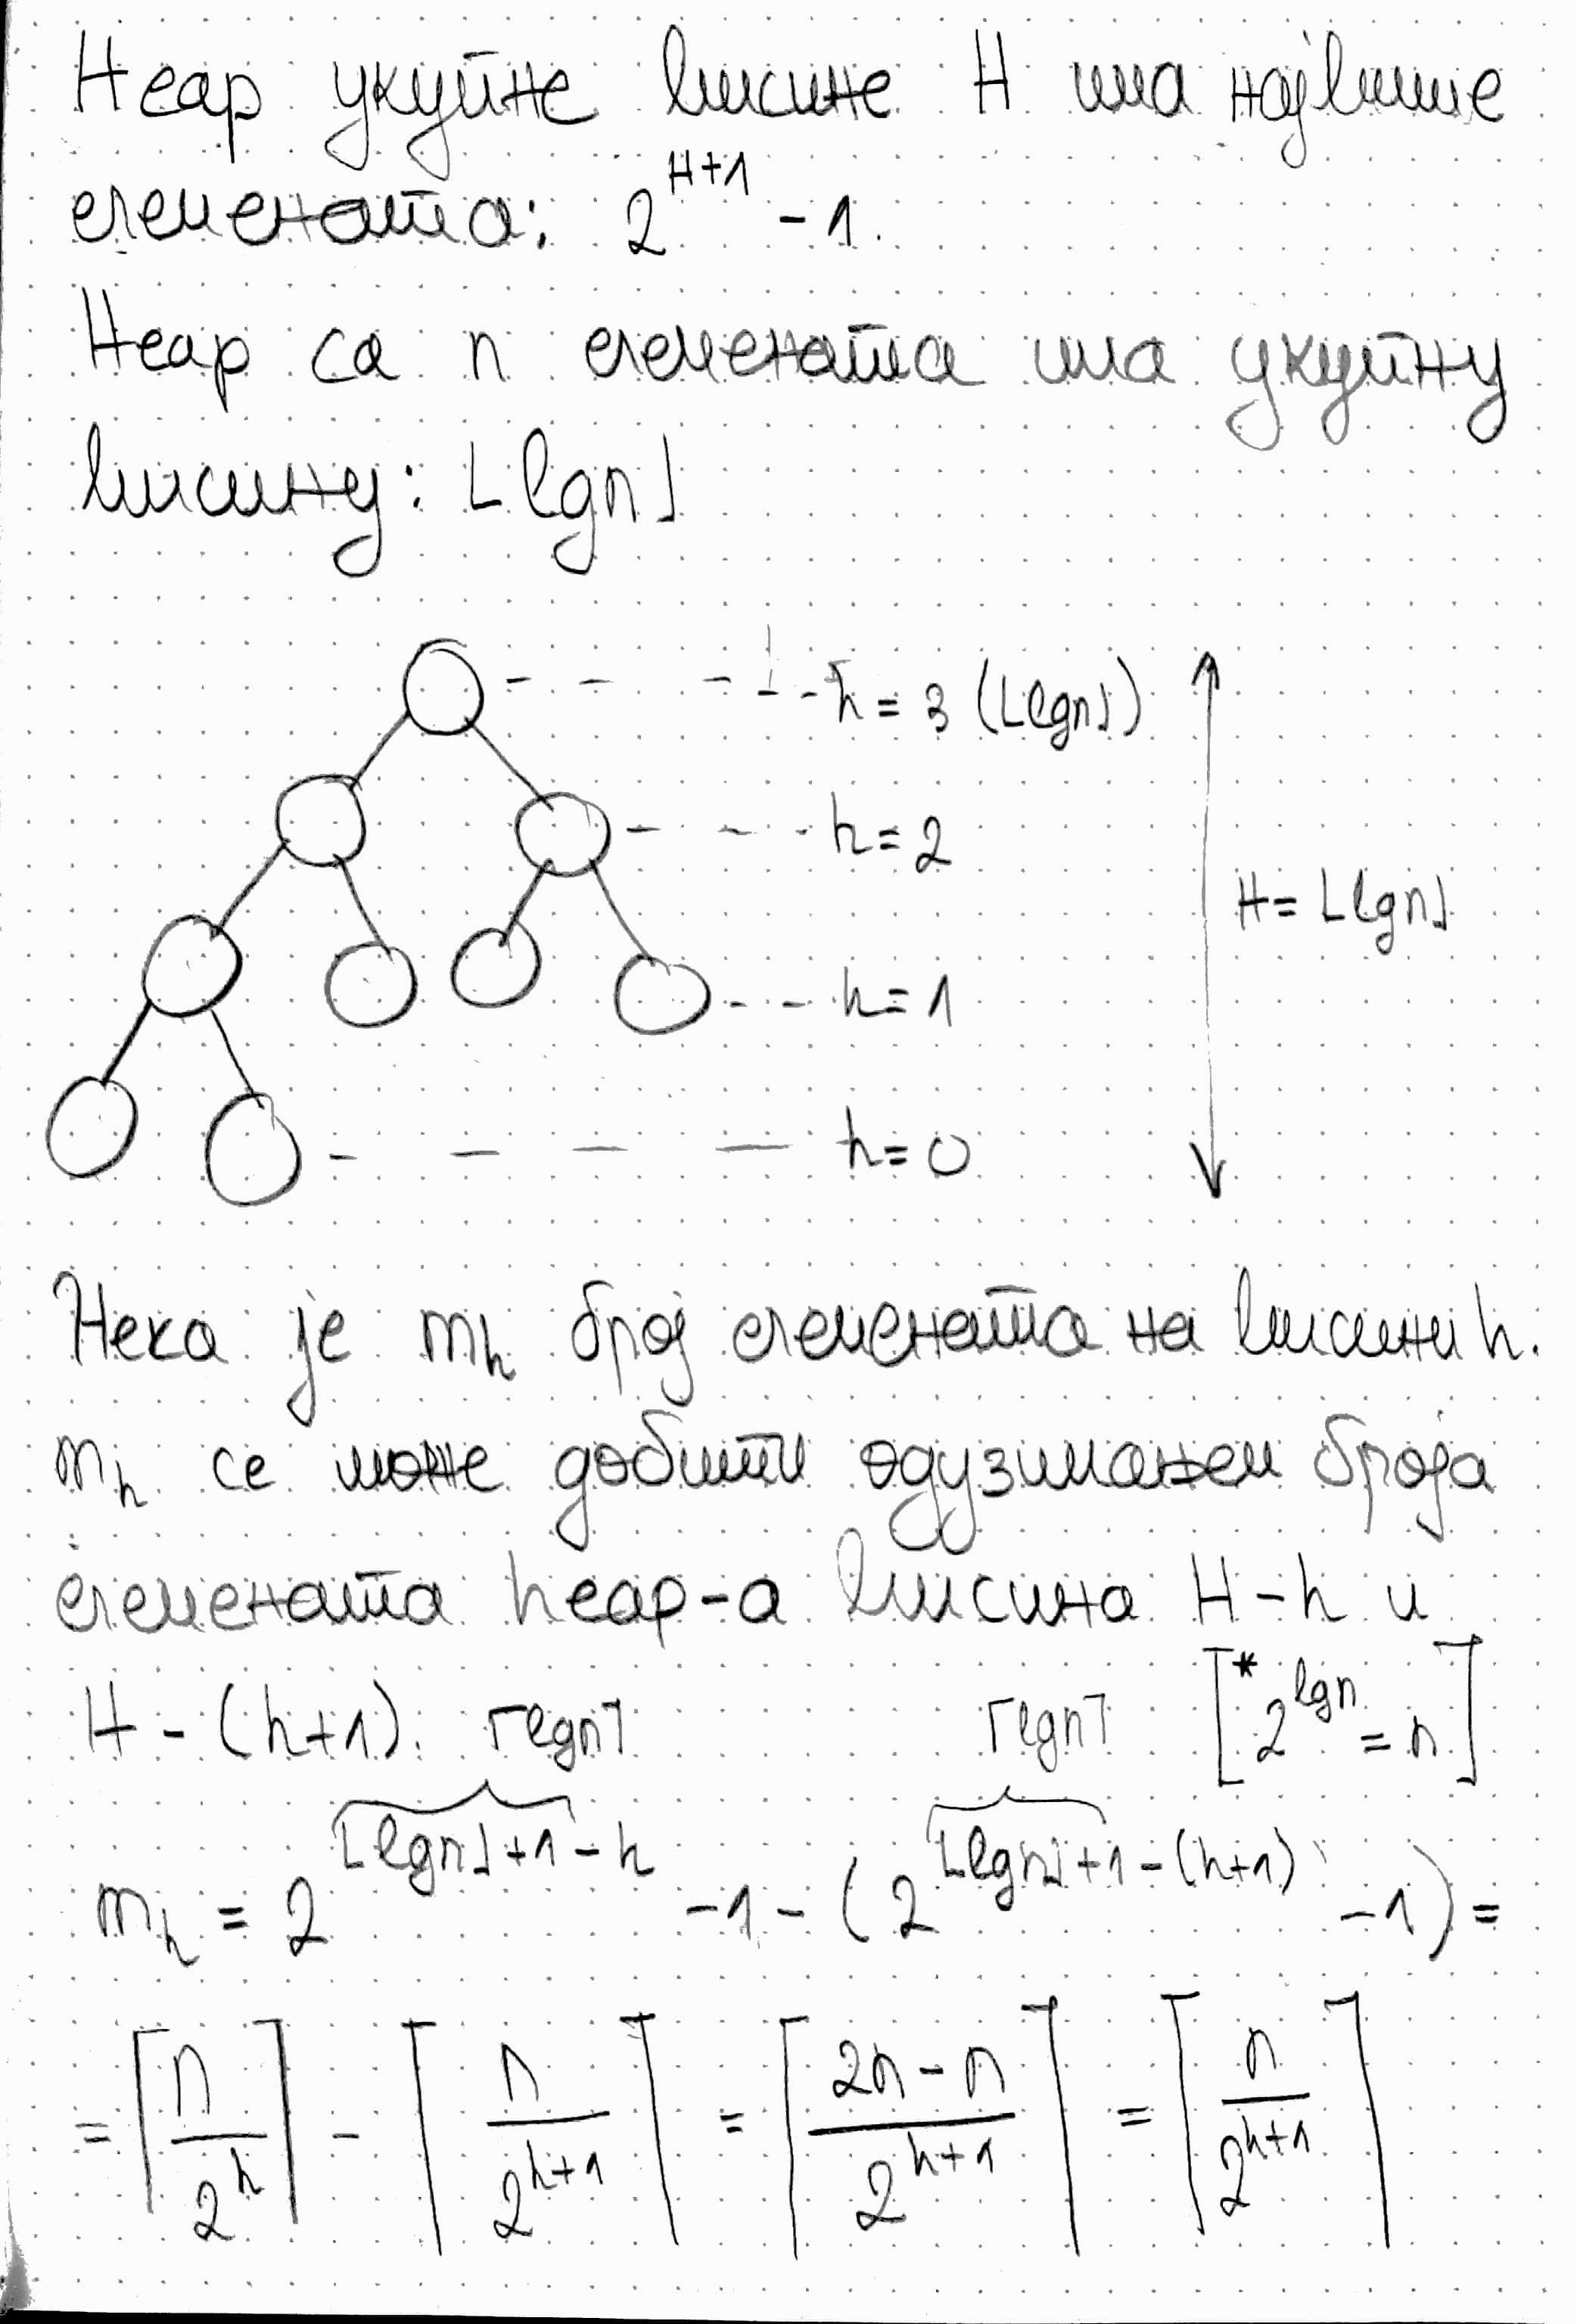 Heap укупне висине H има највише
елемената: 2^{H+1} - 1.
Heap са n елемената има укупну
висину: ⌊lgn⌋
h = 3 (⌊lgn⌋)
h = 2
H = ⌊lgn⌋
h = 1
h = 0
Нека је m_h број елемената на висини h.
m_h се може добити одузимањем броја
елемената heap-а висина H - h и
H - (h+1). ⌈lgn⌉ ⌈lgn⌉ [* 2^{lgn} = n]
m_h = 2^{⌊lgn⌋+1-h} - 1 - (2^{⌊lgn⌋+1-(h+1)} - 1) =
= ⌈n/2^h⌉ - ⌈n/2^{h+1}⌉ = ⌈(2n-n)/2^{h+1}⌉ = ⌈n/2^{h+1}⌉